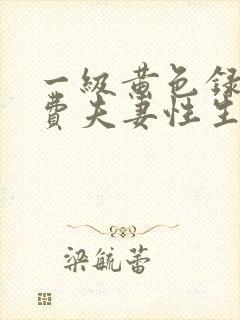 一级黄色録
费夫妻性生
梁毓蕾